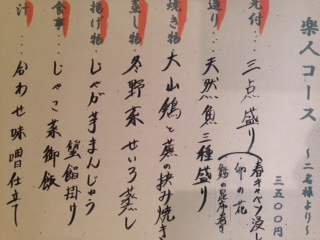 楽人コース 〜二名様より〜
三五〇〇円
先付…三点盛り
春キャベツ浸し
卯の花
造り…天然魚三種盛り
焼き物…大山鶏と蕪の挟み焼き
蒸し物…冬野菜せいろ蒸し
揚げ物…じゃが芋まんじゅう
蟹餡掛り
食事…じゃこ菜御飯
汁…合わせ味噌仕立て